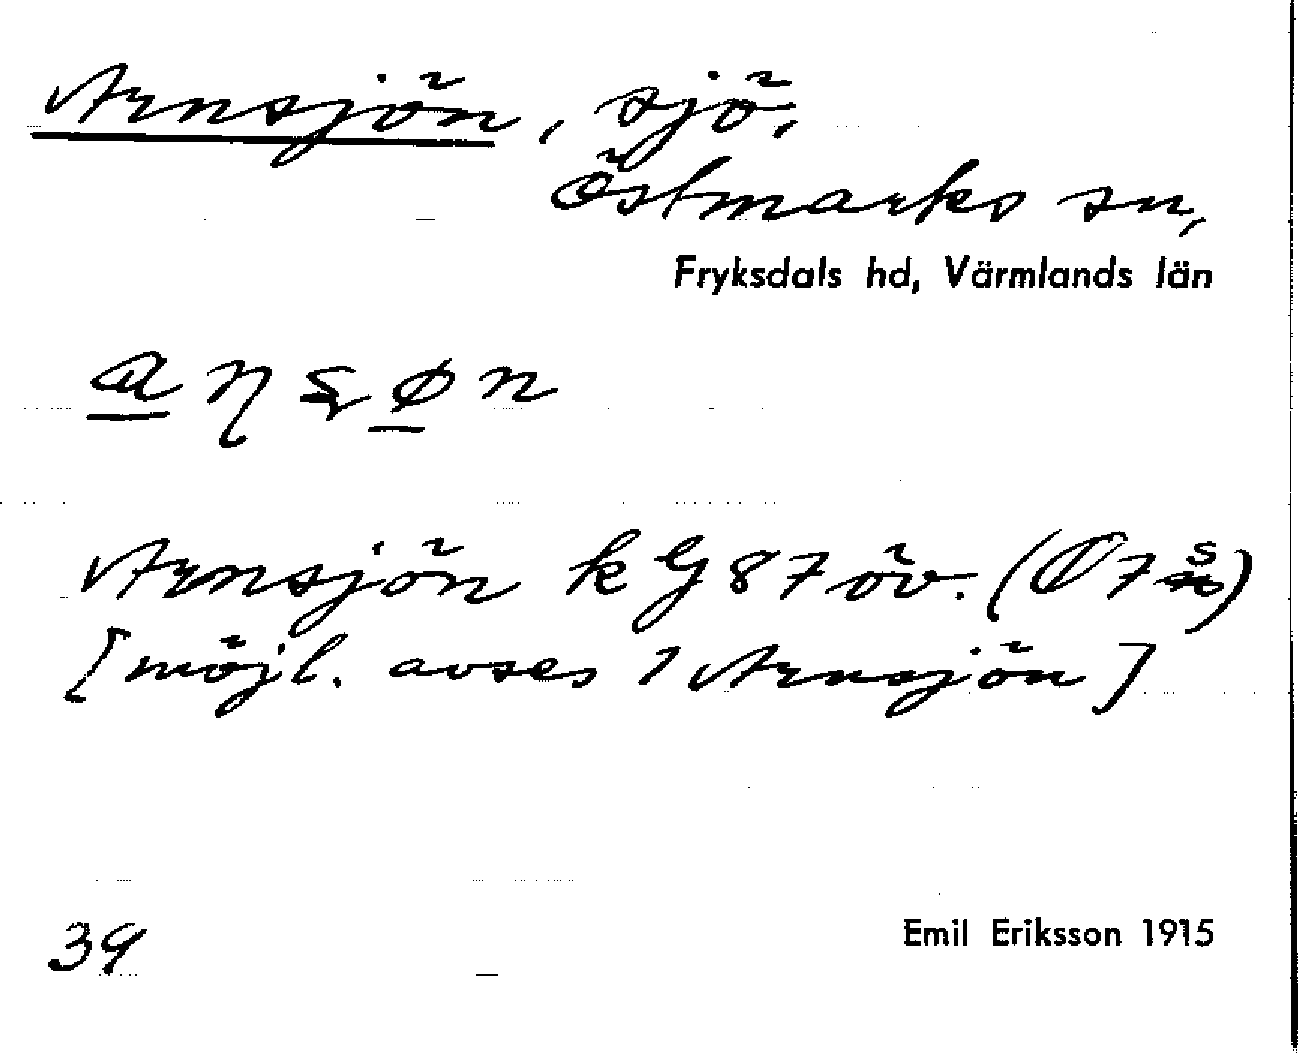 Arnsjön, sjö,
Östmarks sn,
Fryksdals hd, Värmlands län
Arnsjön k G 87 öv. (Ø 7 s)
[möjl. avses 1 Arnsjön]
39
Emil Eriksson 1915